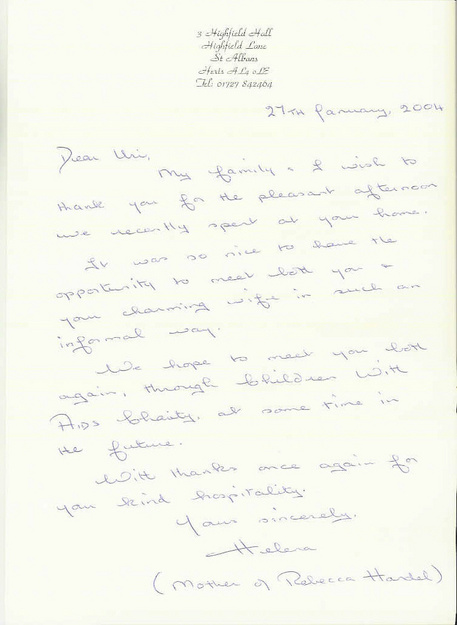 3 Highfield Hall
Highfield Lane
St Albans
Herts AL4 0LE
Tel: 01727 842464
27TH January, 2004
Dear Uri,
My family & I wish to
thank you for the pleasant afternoon
we recently spent at your home.
It was so nice to have the
opportunity to meet both you &
your charming wife in such an
informal way.
We hope to meet you both
again, through Children With
AIDS Charity, at some time in
the future.
With thanks once again for
your kind hospitality.
Yours sincerely,
Helena
(Mother of Rebecca Handel)